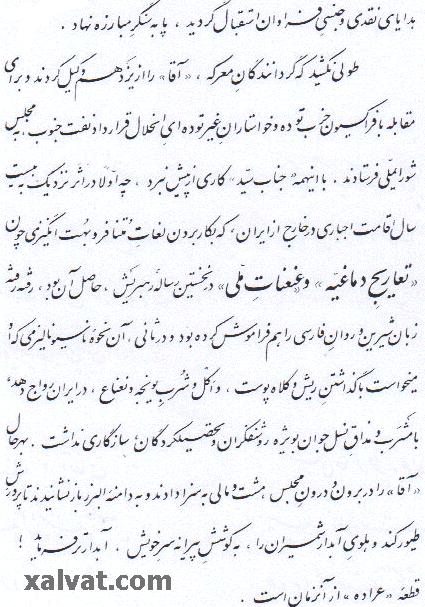 بدایای نقدی و جنسی فراوان استقبال گردید ، پا به سنگر مبارزه نهاد .
طولی نکشید که گردانندگان معرکه ، «آقا» را از یزد هم وکیل کردند و برای
مقابله با فراکسیون حزب توده و خواستاران غیر توده ای انحلال قرارداد نفت جنوب بمجلس
شورایملی فرستادند ، با اینهمه «جناب سید» کاری از پیش نبرد ، چه اولا در اثر نزدیک به بیست
سال اقامت اجباری در خارج از ایران ، که بکار بردن لغات متنافر و بهت انگیزی چون
«تعاریج دماغیه» و «عنعنات ملی» در نخستین رساله رهبریش ، حاصل آن بود ، رفته رفته
زبان شیرین و روان فارسی را هم فراموش کرده بود و در ثانی ، آن نحوه ناسیونالیزمی که او
میخواست با گذاشتن ریش و کلاه پوست ، و اکل و شرب یونجه و نعناع ، در ایران رواج دهد ،
با مشرب و مذاق نسل جوان بویژه روشنفکران و تحصیلکردگان سازگاری نداشت . بهر حال
«آقا» را در برون و درون مجلس هشت و مالی بسزا دادند و به دامنه البرز باز نشانیدند تا پرورش
طیور کند و هلوی آبدار شمیران را ، به کوشش پیرانه سر خویش ، آبدار تر فرماید !
قطعه «عراده» از آنزمان است .
xalvat.com